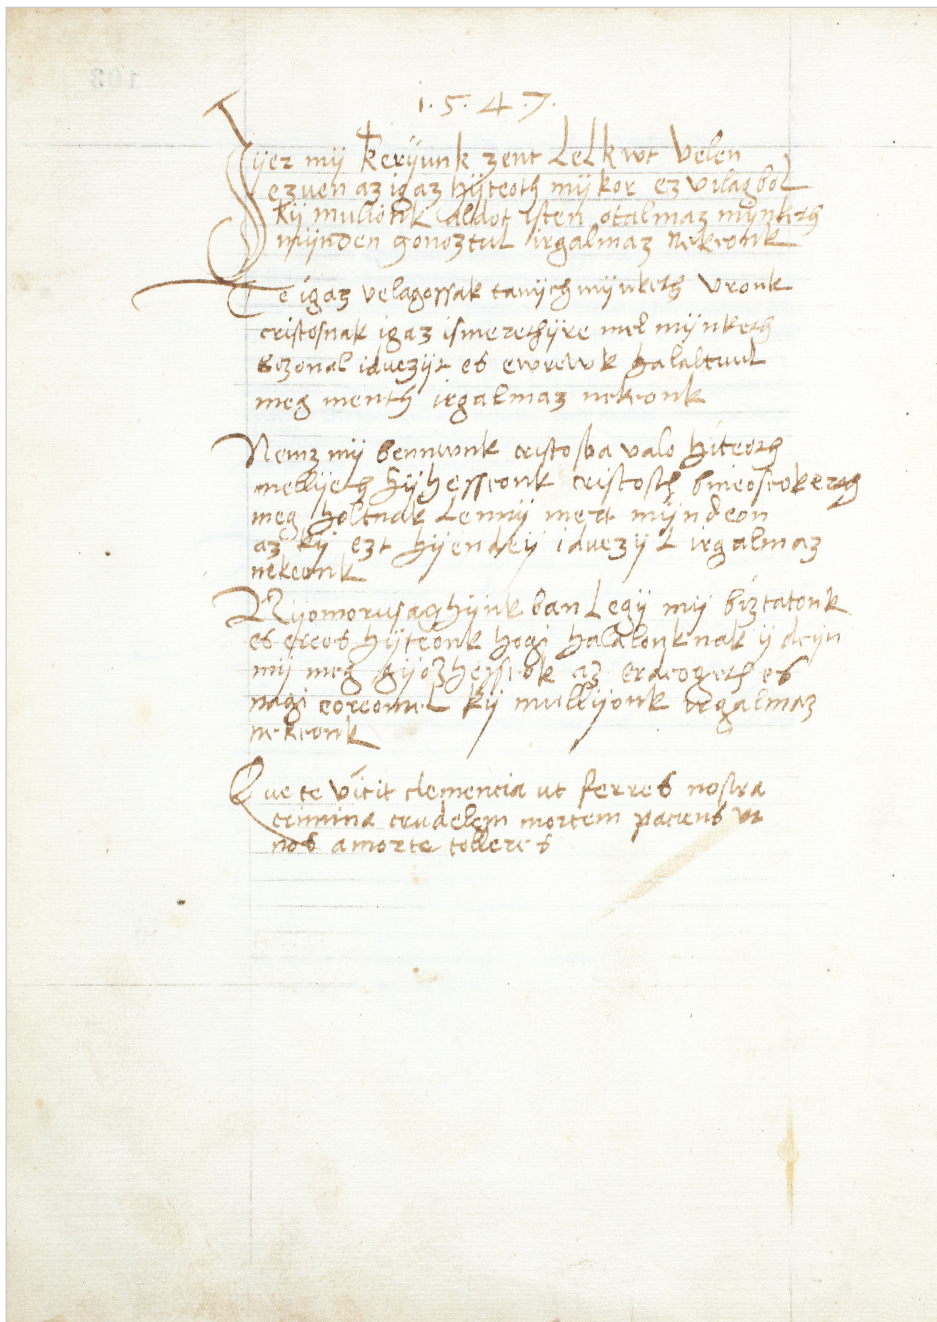 1·5·4·7·
Jijer mij kerijunk zent Lelkwt velen
ezuen az igaz hijteoth mijkor ez vilagbol
kij mulionk aldot isten otalmaz mijnketh
mijnden gonoztul irgalmaz nekeonk
Te igaz velagossak tanijch mijnketh vronk
cristosnak igaz ismerethijre mel mijnketh
bizonal iduezijt es ewrewk halaltuul
meg menth irgalmaz nekeonk
Nemz mij bennwnk cristosba valo hiteoth
mellijeth hijhesseonk cristosth
meg holtnak Lennij mert mijndeon
az kij ezt hijendeij iduezijL irgalmaz
nekeonk
Nijomorusaghijnk ban Legij mij biztatonk
es ereos hijteonk hogi halalonknak ij deijn
mij meg gijozhesseok az erdeogeth es
nagi eoreomel kij mullijonk irgalmaz
nekeonk
Que te vicit clemencia ut ferres nostra
crimina crudelem mortem paciens vt
nos a morte tolleres
103